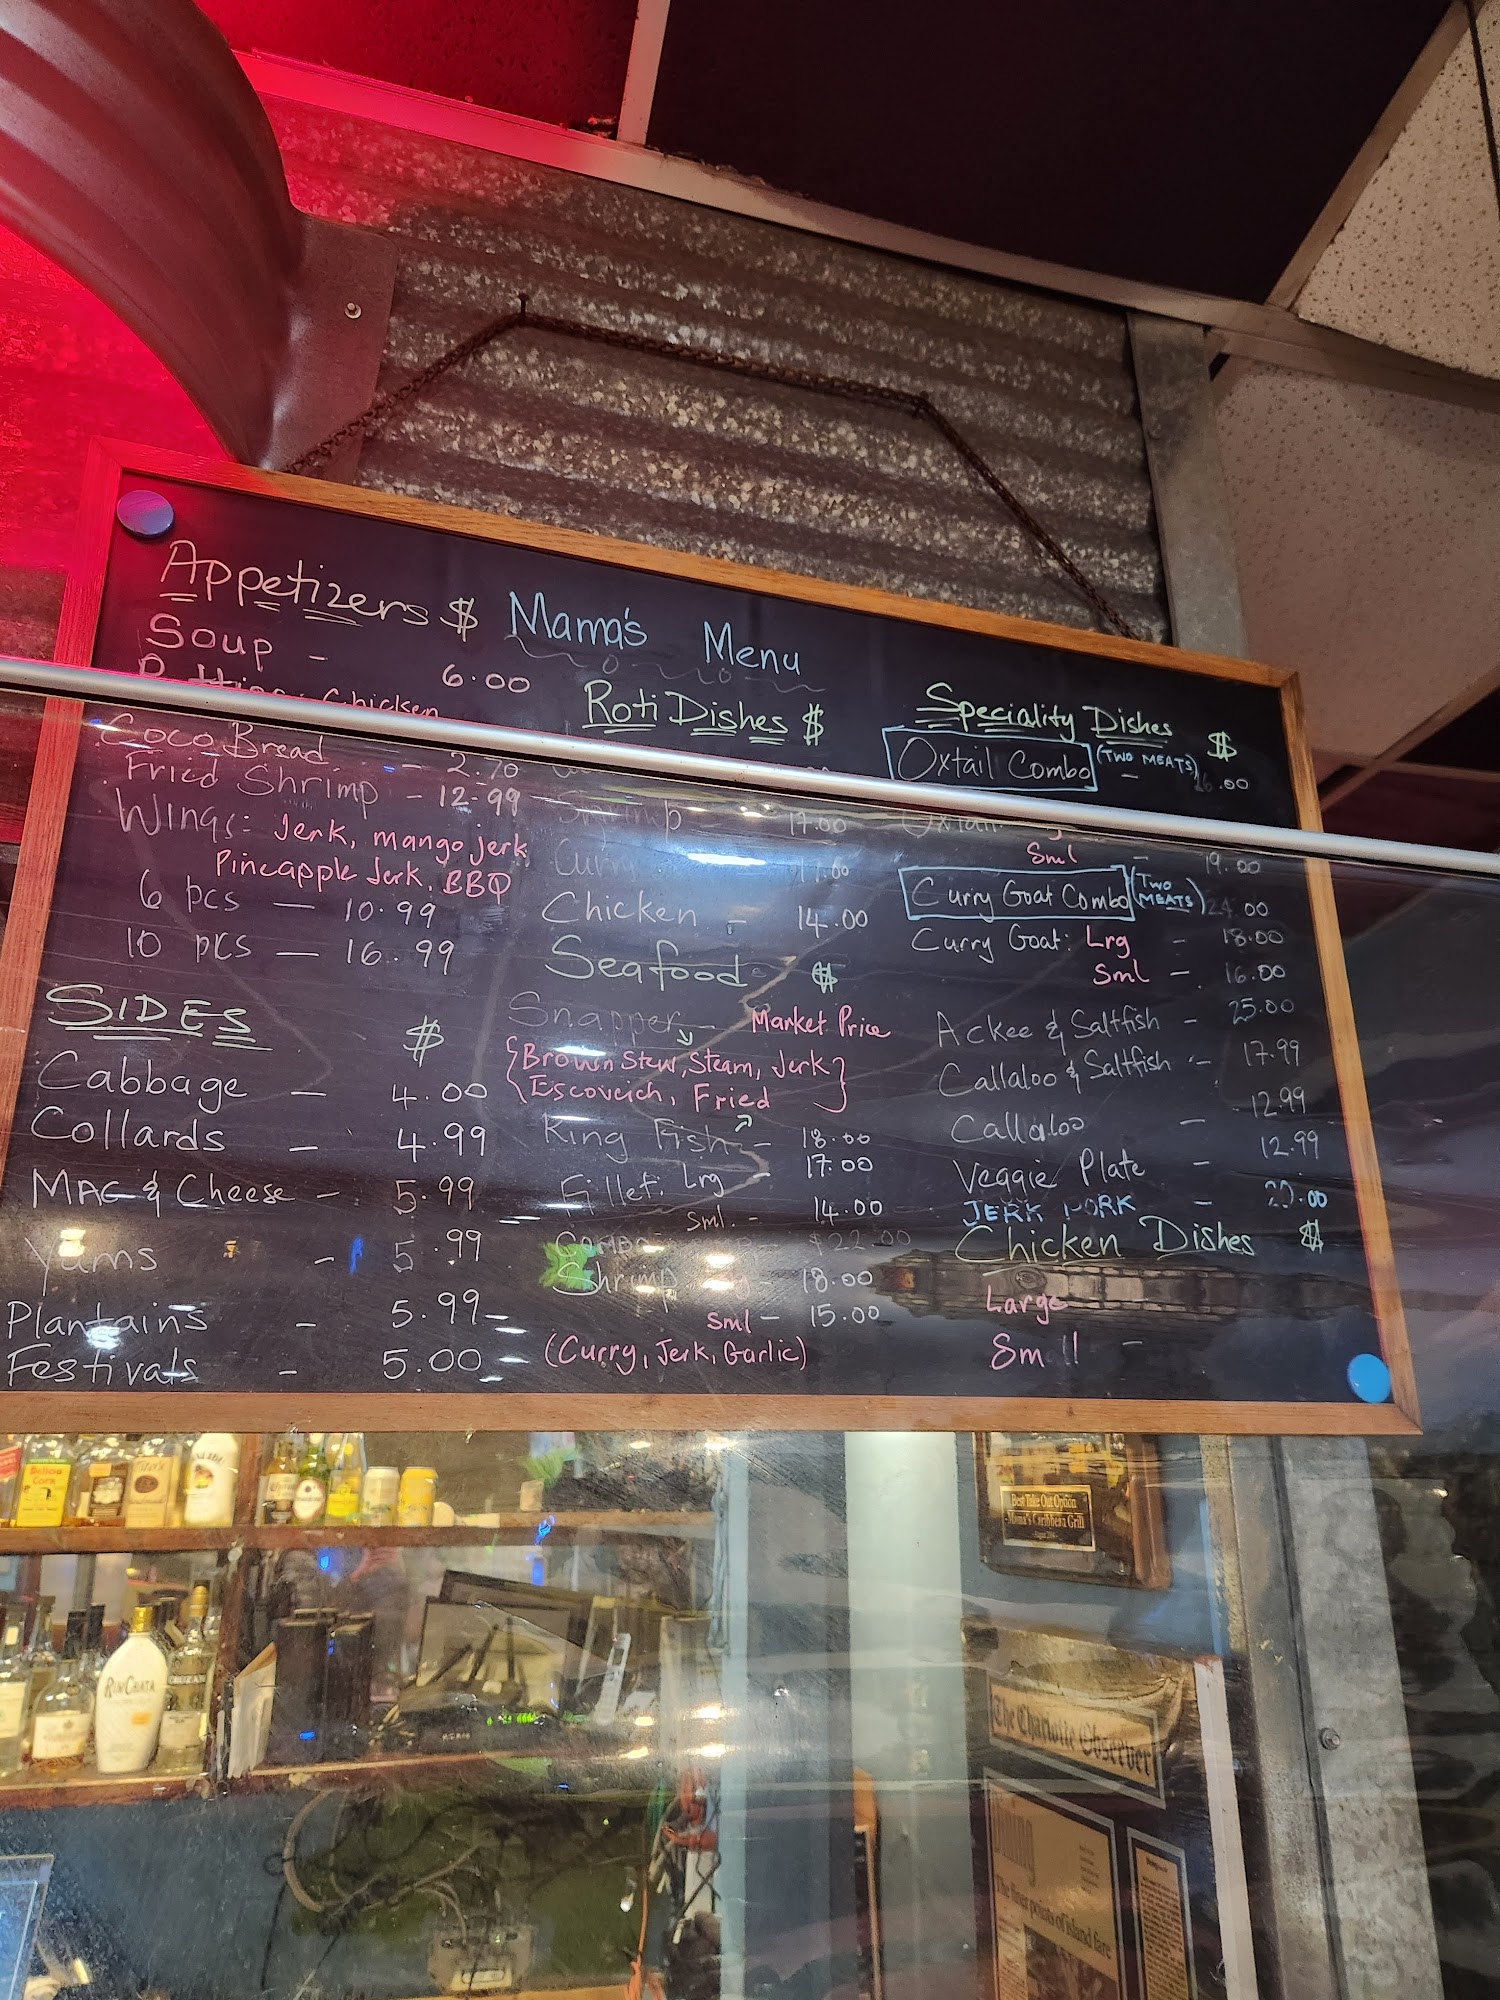 Appetizers $
Soup - 6.00
Chicken
Coco Bread - 2.70
Fried Shrimp - 12.99
Wings: Jerk, mango jerk
Pineapple Jerk, BBQ
6 pcs — 10.99
10 pcs — 16.99
SIDES $
Cabbage - 4.00
Collards - 4.99
Mac & Cheese - 5.99
Yams - 5.99
Plantains - 5.99
Festivals - 5.00
Mama's Menu
Roti Dishes $
Shrimp 17.00
Curry
Chicken - 14.00
Seafood $
Snapper - Market Price
{Brown Stew, Steam, Jerk
Escoveich, Fried}
King Fish - 18.00
Fillet: Lrg - 17.00
Sml. - 14.00
Combo $22.00
Shrimp - 18.00
Sml - 15.00
(Curry, Jerk, Garlic)
Speciality Dishes $
Oxtail Combo (TWO MEATS) -
Oxtail
Sml - 19.00
Curry Goat Combo (TWO MEATS) 24.00
Curry Goat: Lrg - 18.00
Sml - 16.00
Ackee & Saltfish - 25.00
Callaloo & Saltfish - 17.99
Callaloo - 12.99
Veggie Plate - 12.99
JERK PORK -
Chicken Dishes $
Large
Small -
Best Take Out Option
Mama's Caribbean Grill
RumChata
The Charlotte Observer
Dining
The finer points of island fare